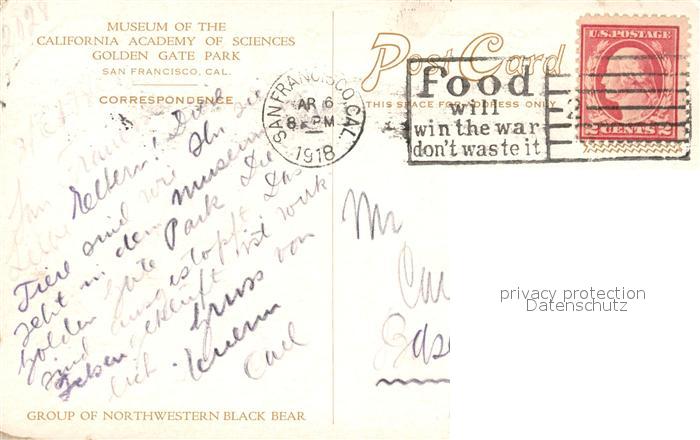 MUSEUM OF THE
CALIFORNIA ACADEMY OF SCIENCES
GOLDEN GATE PARK
SAN FRANCISCO, CAL.
CORRESPONDENCE
Post Card
THIS SPACE FOR ADDRESS ONLY
SAN FRANCISCO, CAL.
8 PM
1918
Food
will
win the war
don't waste it
U.S. POSTAGE
2 CENTS 2
Eltern! Diese
Tiere sind wie Ihr sie
seht in dem Museum
Golden Gate Park Die
sind ausgestopft Das
ist wirk
lich. Gruss von
Carl
Mr
privacy protection
Datenschutz
GROUP OF NORTHWESTERN BLACK BEAR